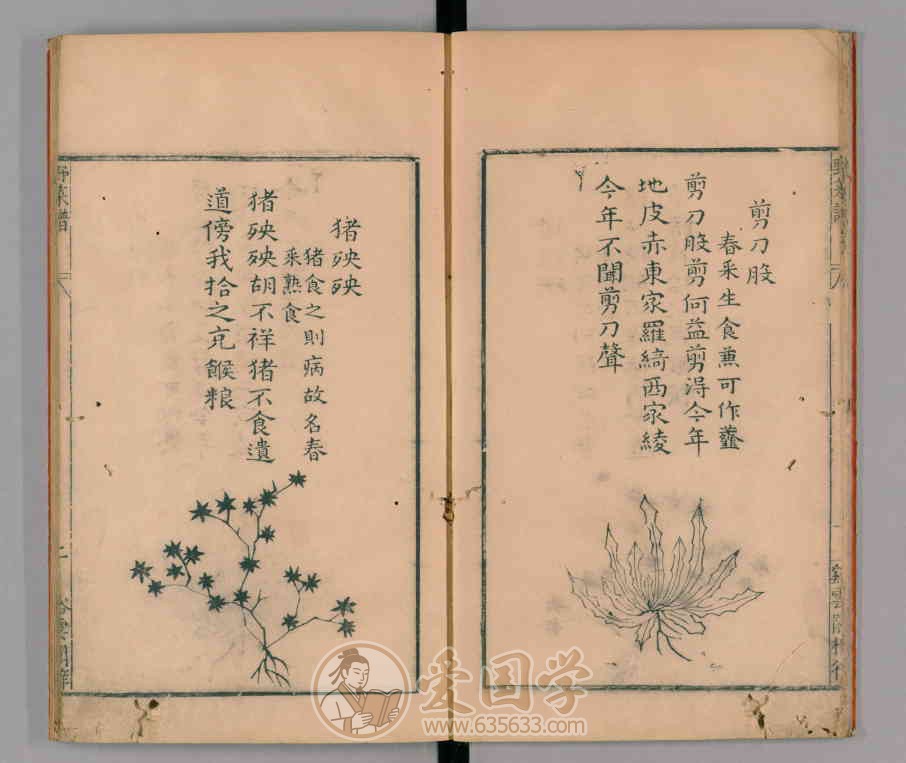 剪刀股
春采生食兼可作虀
剪刀股剪何益剪得今年
地皮赤東家羅綺西家綾
今年不聞剪刀聲
猪殃殃
猪食之則病故名春
采熟食
猪殃殃胡不祥猪不食遺
道傍我拾之充餱粮
野菜譜
爱国学
www.635633.com